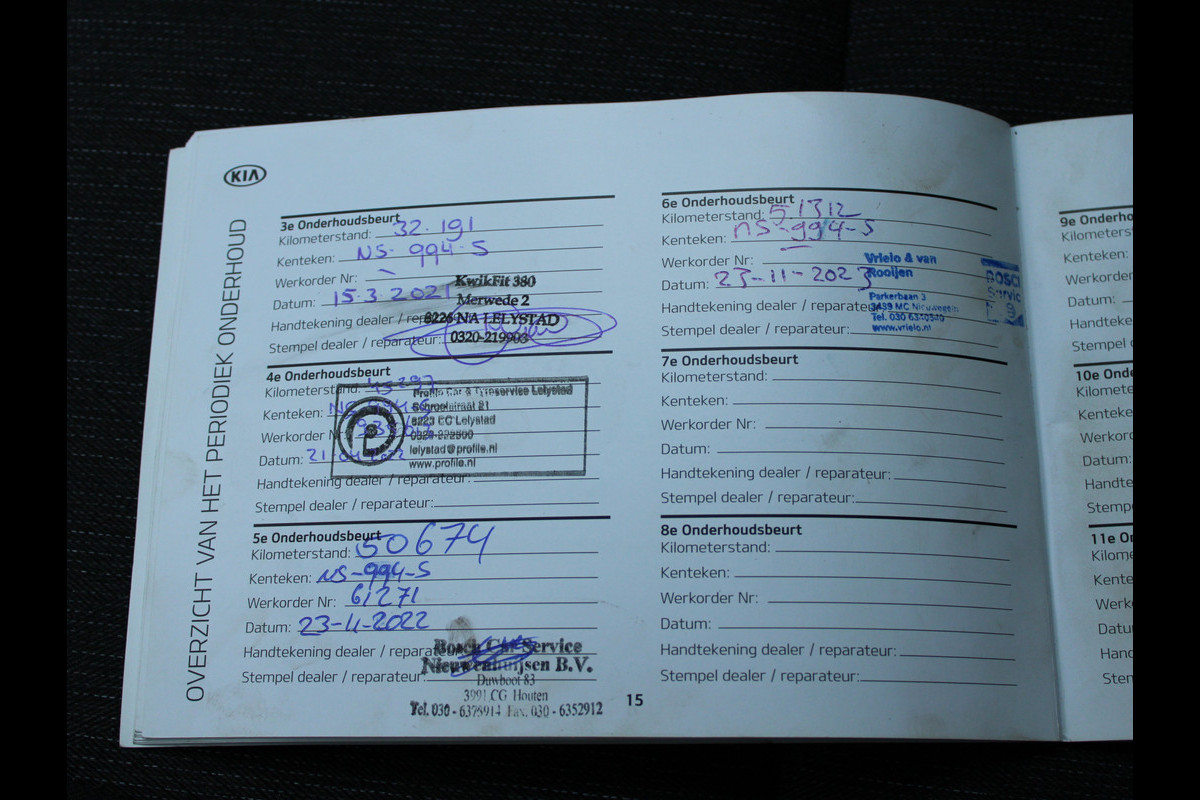 KIA
OVERZICHT VAN HET PERIODIEK ONDERHOUD
3e Onderhoudsbeurt
Kilometerstand: 32.191
Kenteken: NS-994-S
Werkorder Nr:
Datum: 15.3.2021
Handtekening dealer / reparateur:
Stempel dealer / reparateur:
KwikFit 380
Merwede 2
8226 NA LELYSTAD
0320-219903
4e Onderhoudsbeurt
Kilometerstand:
Kenteken: NS-994-S
Werkorder Nr:
Datum:
Handtekening dealer / reparateur:
Stempel dealer / reparateur:
Profile Car & Tyreservice Lelystad
8223 CC Lelystad
lelystad@profile.nl
www.profile.nl
5e Onderhoudsbeurt
Kilometerstand: 50674
Kenteken: NS-994-S
Werkorder Nr: 61271
Datum: 23-11-2022
Handtekening dealer / reparateur:
Stempel dealer / reparateur:
Bosch Car Service
Nieuwenhuijsen B.V.
Duwboot 83
3991 CG Houten
Tel. 030 - 6375914 Fax. 030 - 6352912
15
6e Onderhoudsbeurt
Kilometerstand: 51312
Kenteken: NS-994-S
Werkorder Nr:
Datum: 23-11-2023
Handtekening dealer / reparateur:
Stempel dealer / reparateur:
Vrielo & van
Rooijen
Parkerbaan 3
3439 MC Nieuwegein
www.vrielo.nl
7e Onderhoudsbeurt
Kilometerstand:
Kenteken:
Werkorder Nr:
Datum:
Handtekening dealer / reparateur:
Stempel dealer / reparateur:
8e Onderhoudsbeurt
Kilometerstand:
Kenteken:
Werkorder Nr:
Datum:
Handtekening dealer / reparateur:
Stempel dealer / reparateur:
9e Onderho
Kilometers
Kenteken:
Werkorde
Datum:
Handteke
Stempel d
10e Ond
Kilomete
Kenteke
Werkor
Datum:
Handte
Stempe
11e O
Kilome
Kente
Werk
Datu
Hand
Sten